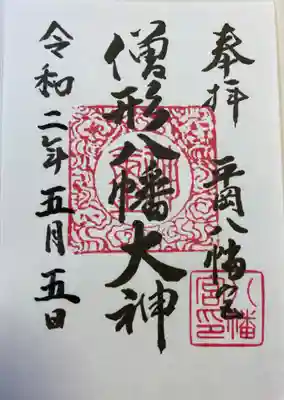 奉拝
平岡八幡宮
僧形八幡大神
令和二年五月五日
八幡宮印